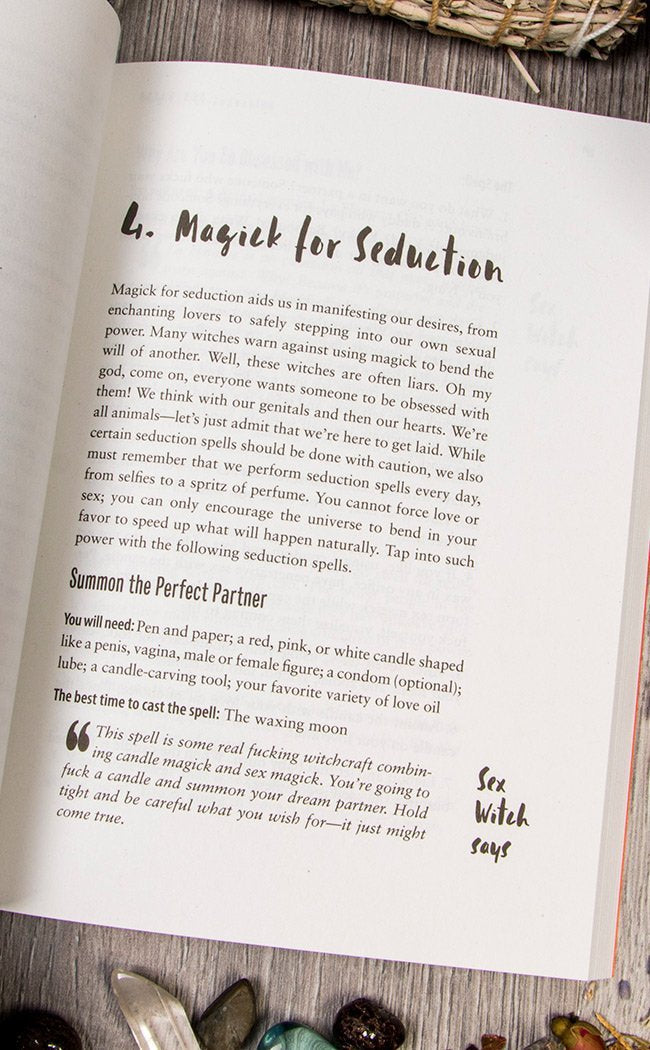 4. Magick for Seduction
Magick for seduction aids us in manifesting our desires, from
enchanting lovers to safely stepping into our own sexual
power. Many witches warn against using magick to bend the
will of another. Well, these witches are often liars. Oh my
god, come on, everyone wants someone to be obsessed with
them! We think with our genitals and then our hearts. We're
all animals—let's just admit that we're here to get laid. While
certain seduction spells should be done with caution, we also
must remember that we perform seduction spells every day,
from selfies to a spritz of perfume. You cannot force love or
sex; you can only encourage the universe to bend in your
favor to speed up what will happen naturally. Tap into such
power with the following seduction spells.
Summon the Perfect Partner
You will need: Pen and paper; a red, pink, or white candle shaped
like a penis, vagina, male or female figure; a condom (optional);
lube; a candle-carving tool; your favorite variety of love oil
The best time to cast the spell: The waxing moon
“This spell is some real fucking witchcraft combin-
ing candle magick and sex magick. You're going to
fuck a candle and summon your dream partner. Hold
tight and be careful what you wish for—it just might
come true.
Sex
Witch
says